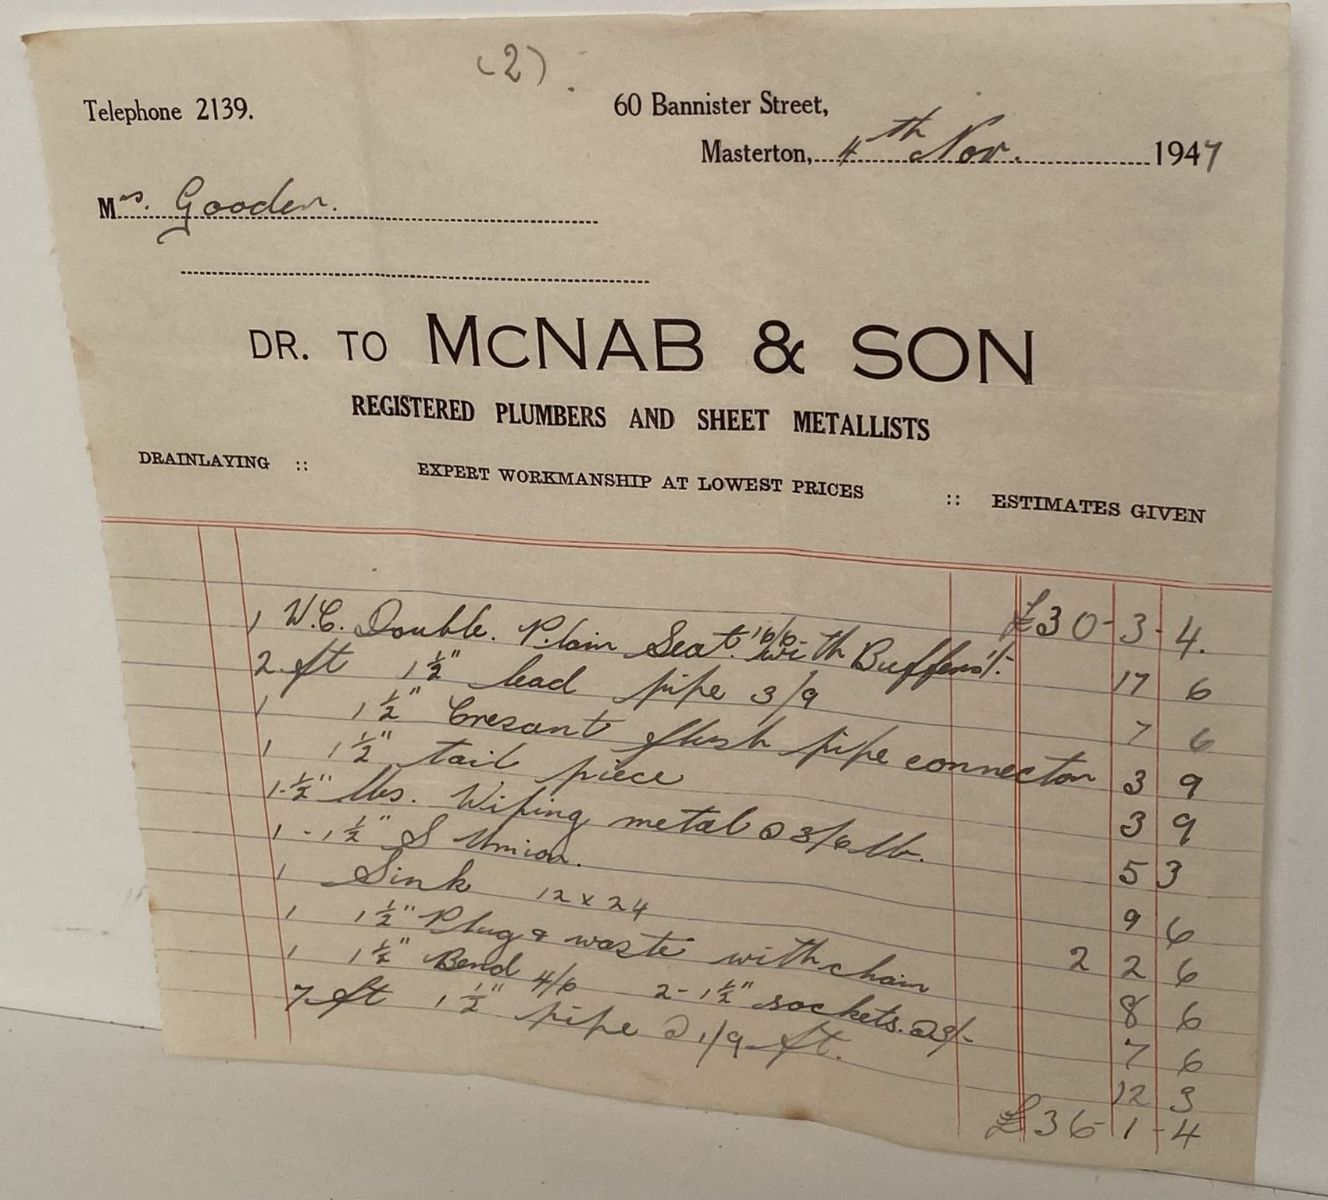 (2).
Telephone 2139. 60 Bannister Street,
Masterton, 4th Nov. 1947
Mrs. Gooden.
DR. TO McNAB & SON
REGISTERED PLUMBERS AND SHEET METALLISTS
DRAINLAYING :: EXPERT WORKMANSHIP AT LOWEST PRICES :: ESTIMATES GIVEN
£30-3-4.
1 W.C. Double. Plain Seat. 16/6 with Buffers 1/- 17 6
2 ft 1½" lead pipe 3/9 7 6
1 1½" Cresant flush pipe connector 3 9
1 1½" tail piece 3 9
1-½" lbs. Wiping metal @ 3/6 lb. 5 3
1 - 1½" S Union. 9 6
1 Sink 12 x 24 2 2 6
1 1½" Plug & waste with chain 8 6
1 1½" Bend 4/6 2 - 1½" sockets. @ 3/- 7 6
7 ft 1½" pipe @ 1/9 ft. 12 3
£36-1-4